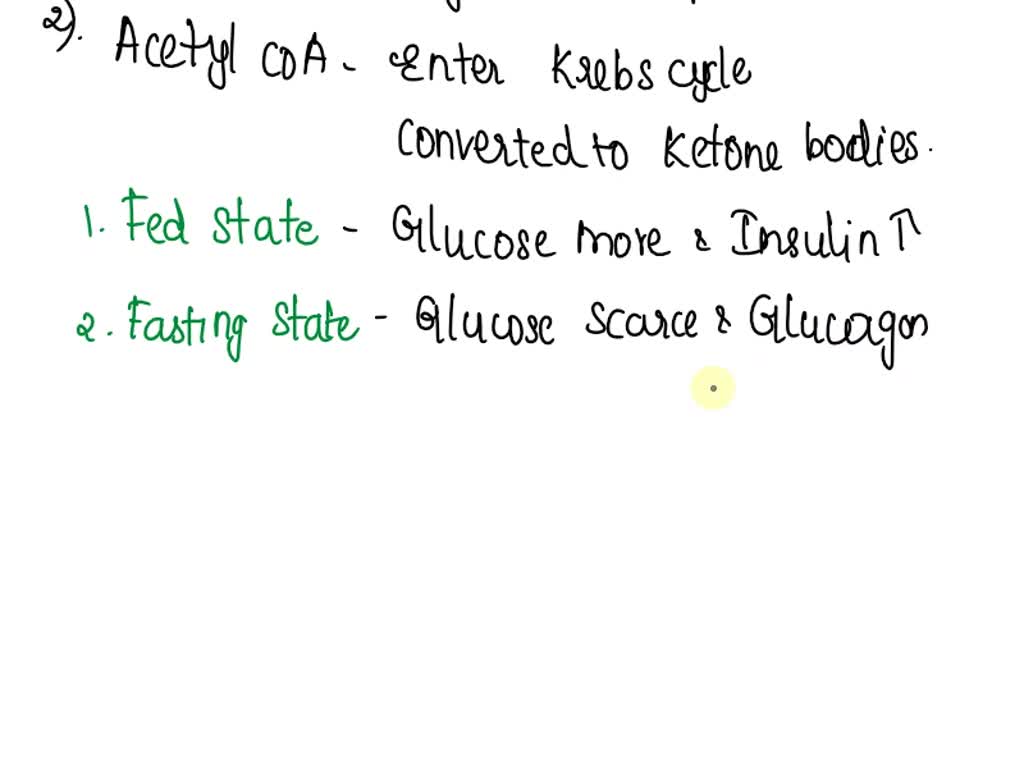 2). Acetyl CoA - Enter Krebs cycle
Converted to Ketone bodies.
1. Fed state - Glucose more & Insulin ↑
2. Fasting state - Glucose scarce & Glucagon